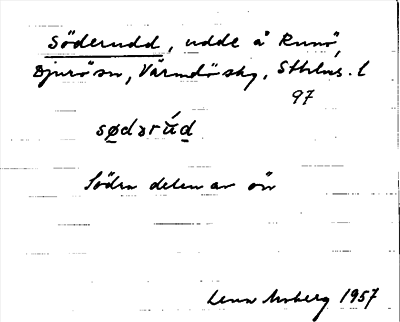 Söderudd, udde å Runö,
Djurö sn, Värmdö skg, Sthlms. l
97
sødərúd
Södra delen av ön
Lena Moberg 1957